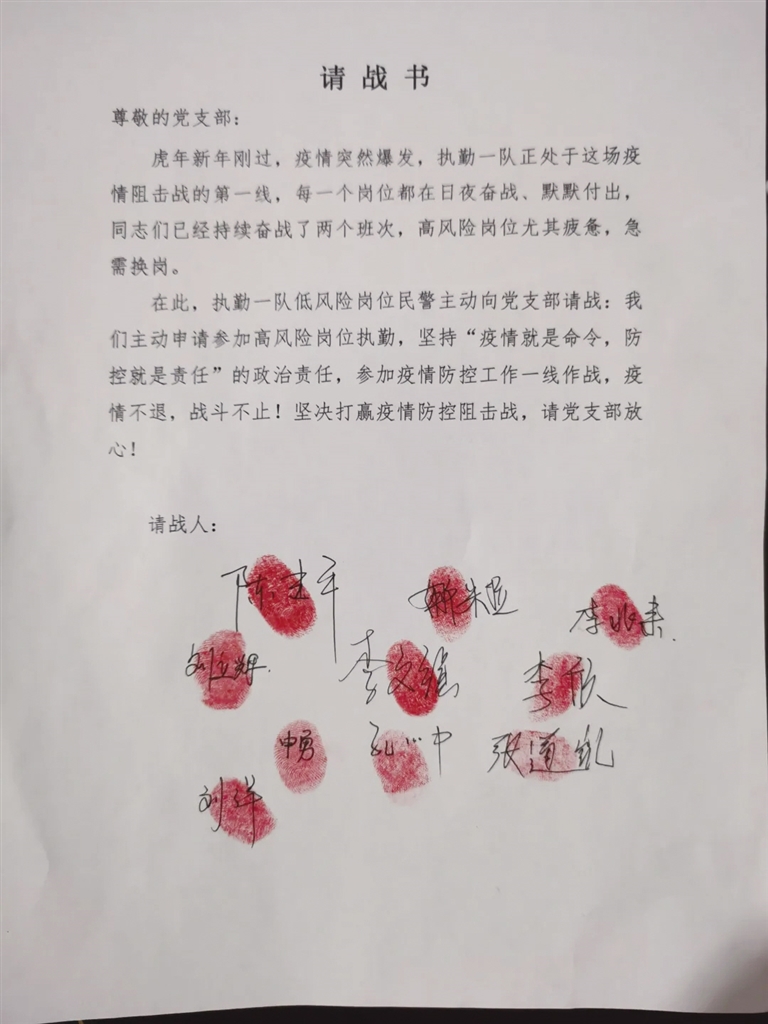 请战书
尊敬的党支部：
虎年新年刚过，疫情突然爆发，执勤一队正处于这场疫
情阻击战的第一线，每一个岗位都在日夜奋战、默默付出，
同志们已经持续奋战了两个班次，高风险岗位尤其疲惫，急
需换岗。
在此，执勤一队低风险岗位民警主动向党支部请战：我
们主动申请参加高风险岗位执勤，坚持“疫情就是命令，防
控就是责任”的政治责任，参加疫情防控工作一线作战，疫
情不退，战斗不止！坚决打赢疫情防控阻击战，请党支部放
心！
请战人：
陈建平
李兆来
刘立辉
李文强 李欣
申勇 张道
刘洋